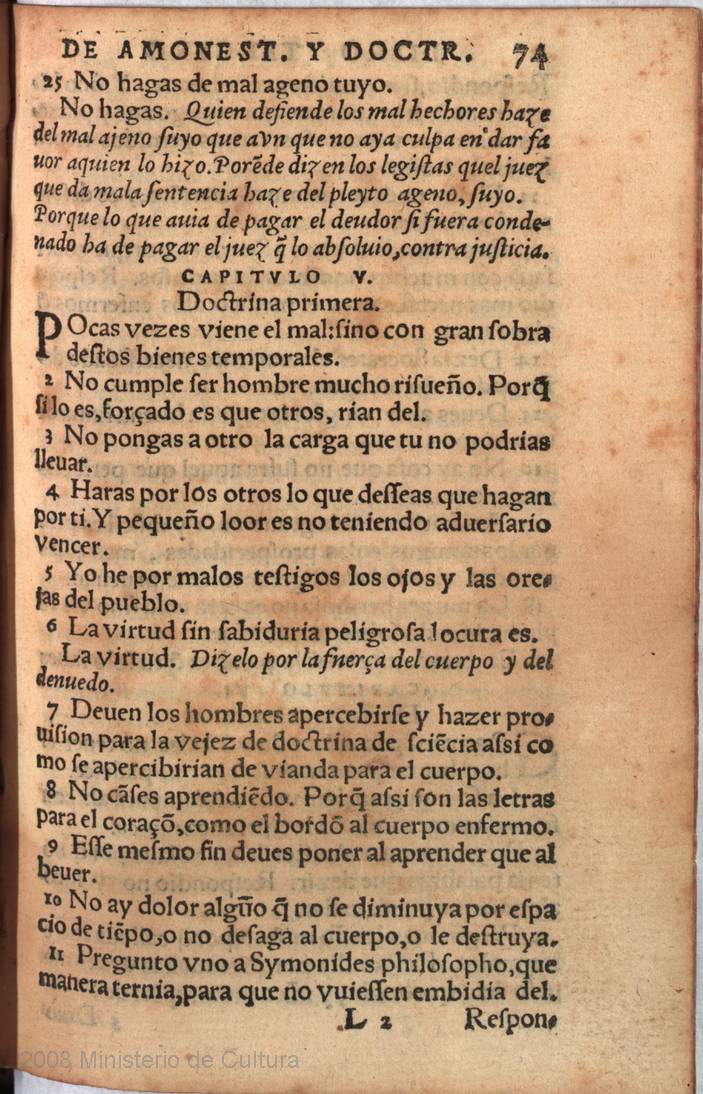 DE AMONEST. Y DOCTR. 74
25 No hagas de mal ageno tuyo.
No hagas. Quien defiende los mal hechores haze
del mal ajeno ſuyo que avn que no aya culpa en dar fa
uor aquien lo hizo. Porẽde dizen los legiſtas quel juez
que da mala ſentencia haze del pleyto ageno, ſuyo.
Porque lo que auia de pagar el deudor ſi fuera conde-
nado ha de pagar el juez q̃ lo abſoluio, contra juſticia.
CAPITVLO V.
Doctrina primera.
POcas vezes viene el mal: ſino con gran ſobra
deſtos bienes temporales.
2 No cumple ſer hombre mucho riſueño. Porq̃
ſi lo es, forçado es que otros, rian del.
3 No pongas a otro la carga que tu no podrias
lleuar.
4 Haras por los otros lo que deſſeas que hagan
por ti. Y pequeño loor es no teniendo aduerſario
vencer.
5 Yo he por malos teſtigos los ojos y las ore-
jas del pueblo.
6 La virtud ſin ſabiduria peligroſa locura es.
La virtud. Dizelo por la fnerça del cuerpo y del
denuedo.
7 Deuen los hombres apercebirſe y hazer pro-
uiſion para la vejez de doctrina de ſciẽcia aſsi co
mo ſe apercibirian de vianda para el cuerpo.
8 No cãſes aprendiẽdo. Porq̃ aſsi ſon las letras
para el coraçõ, como el bordõ al cuerpo enfermo.
9 Eſſe meſmo fin deues poner al aprender que al
beuer.
10 No ay dolor algũo q̃ no ſe diminuya por eſpa
cio de tiẽpo, o no deſaga al cuerpo, o le deſtruya.
11 Pregunto vno a Symonides philoſopho, que
manera ternia, para que no vuieſſen embidia del.
L 2 Reſpon-
2008 Ministerio de Cultura